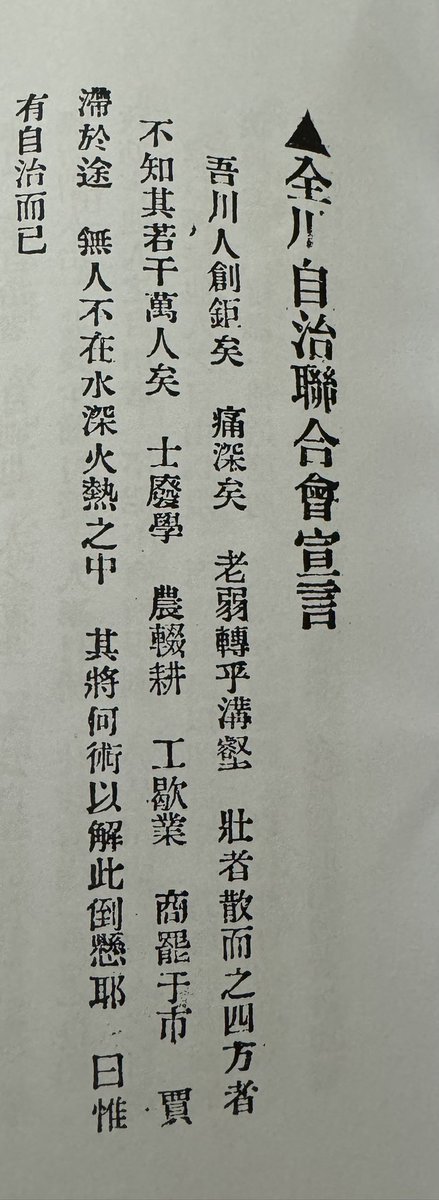 ▲全川自治聯合會宣言
吾川人創鉅矣　痛深矣　老弱轉乎溝壑　壯者散而之四方者
不知其若干萬人矣　士廢學　農輟耕　工歇業　商罷于市　賈
滯於途　無人不在水深火熱之中　其將何術以解此倒懸耶　曰惟
有自治而已